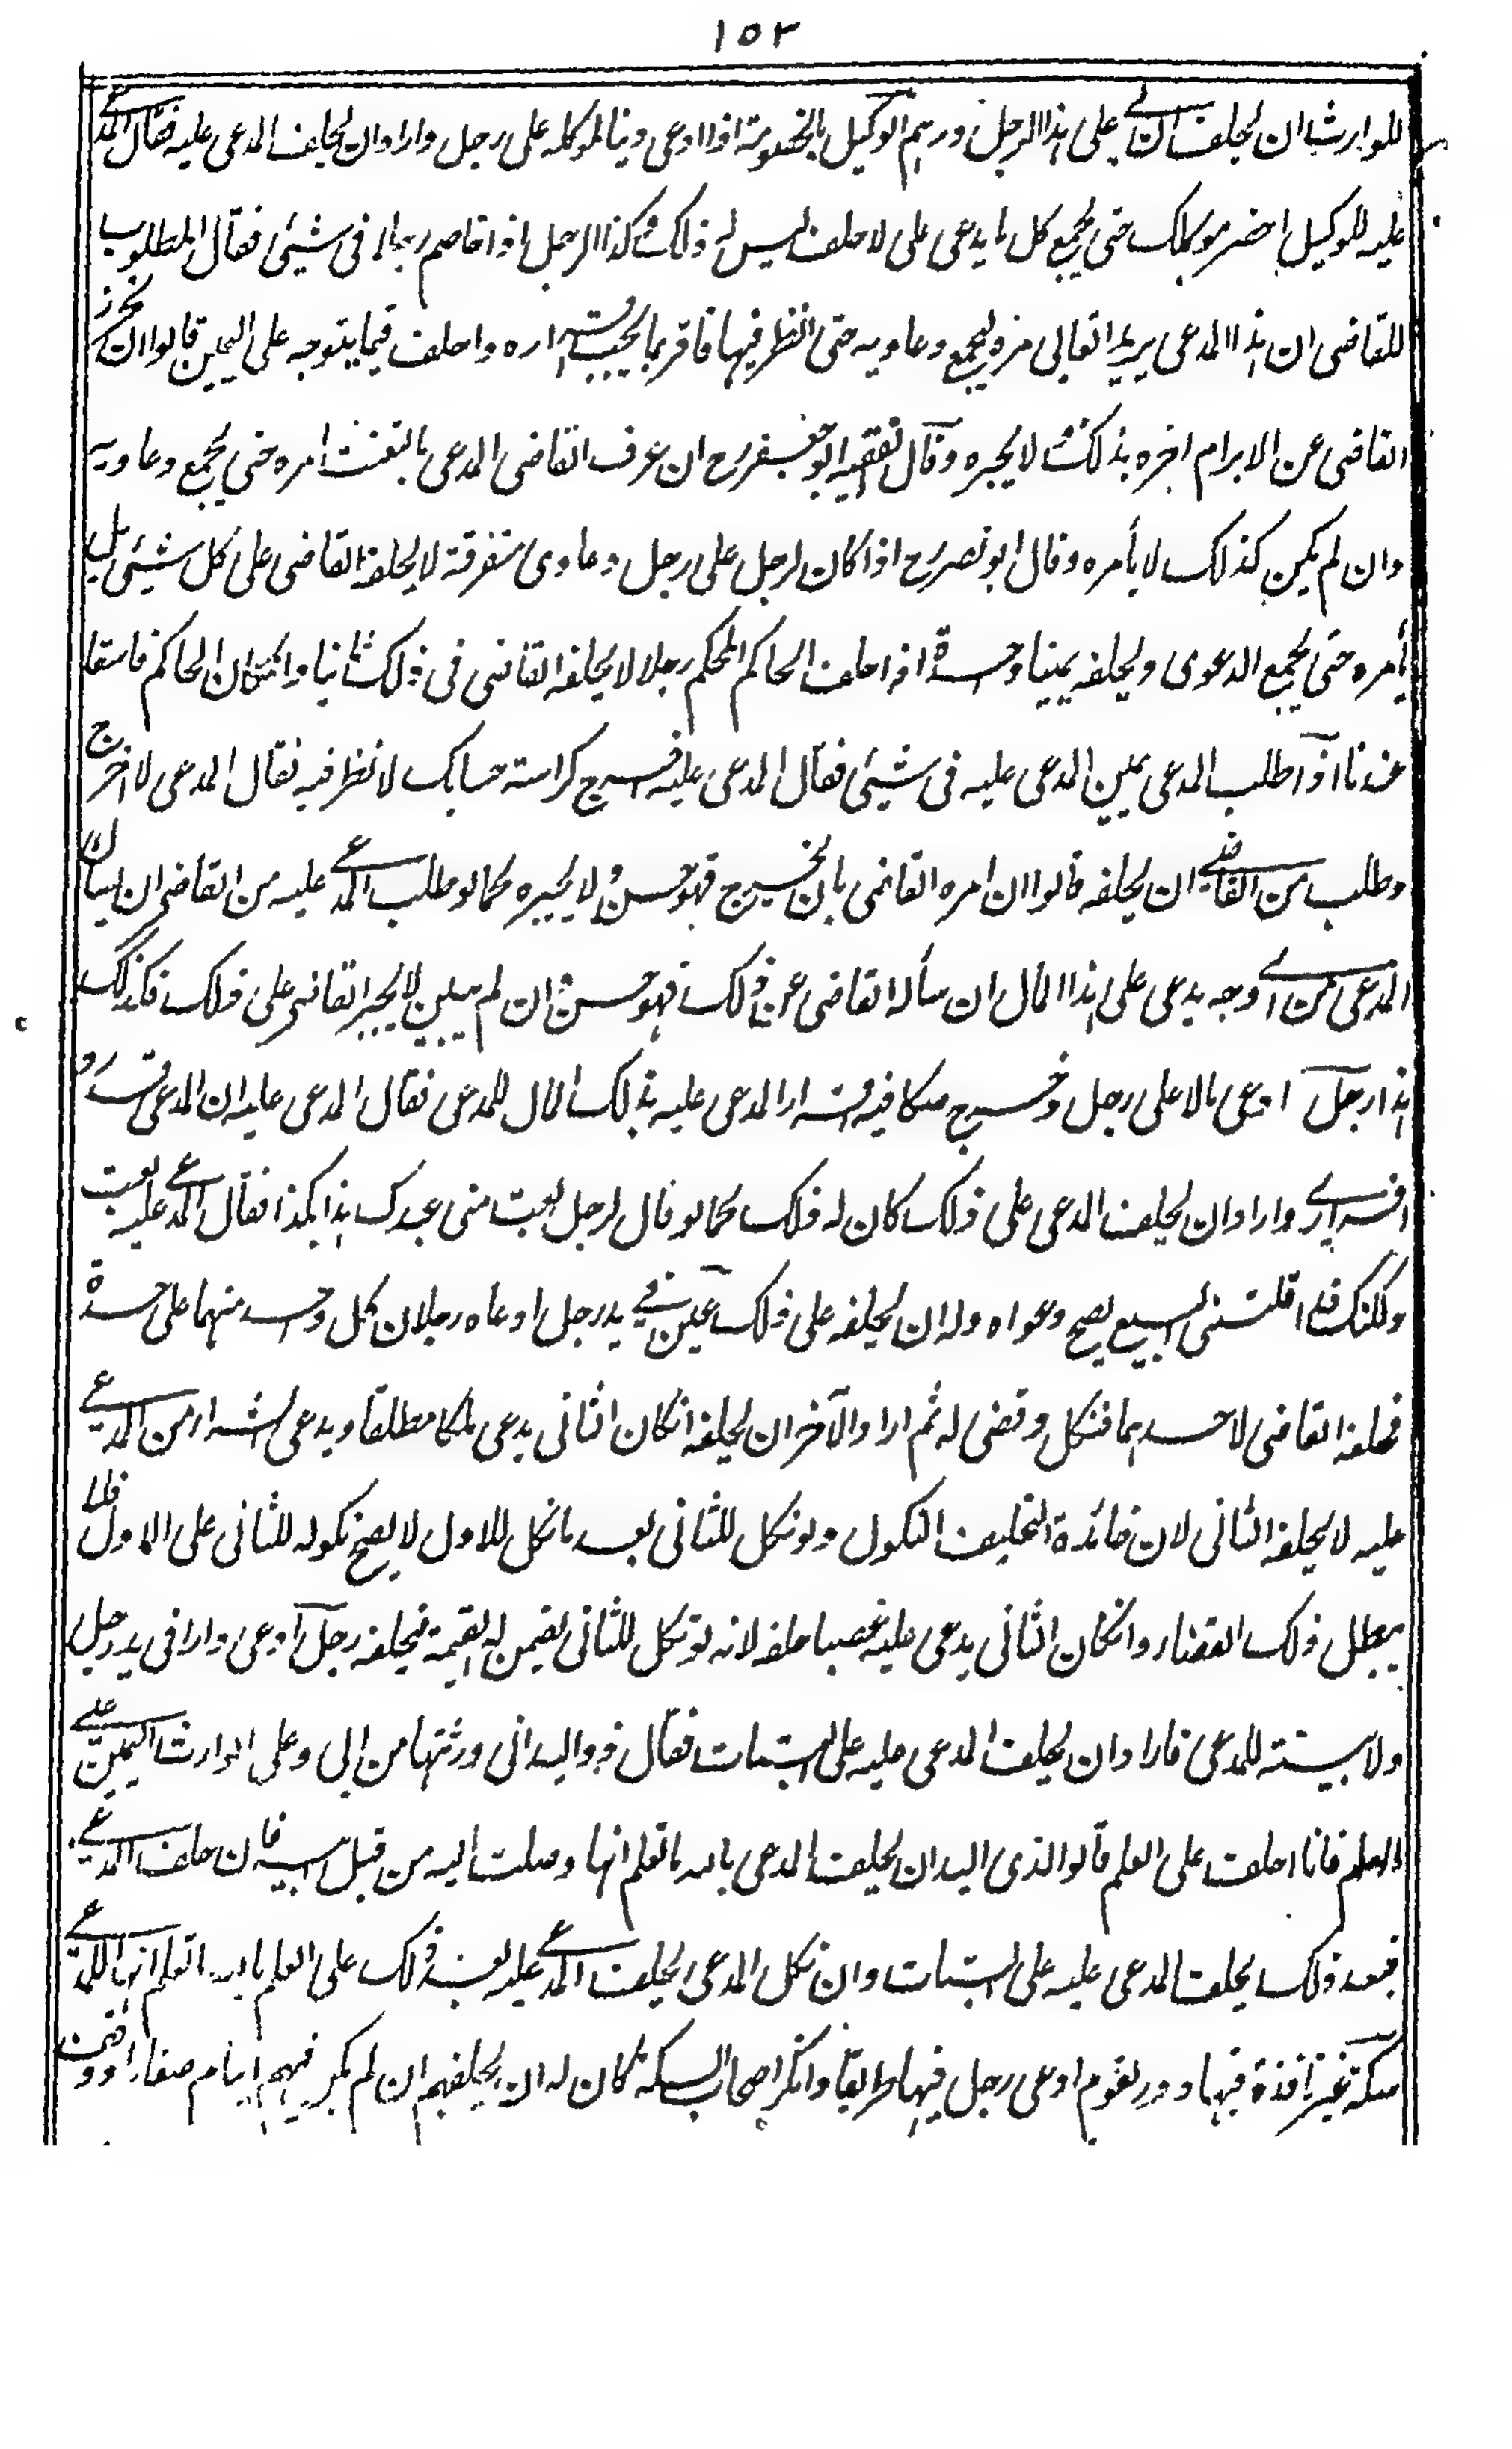 ١٥٢
للوارث ان يحلف ان لي على هذا الرجل درهم الوكيل بالخصومة اذا ادعى دينا لموكله على رجل واراد ان يحلف المدعى عليه فقال المدعى
عليه للوكيل احضر موكلك حتى يجمع كل ما يدعى على لاحلف ليس له ذلك وكذا الرجل اذا خاصم رجلا فى شيئ فقال المطلوب
للقاضى ان هذا المدعى يريد اتعابى مره ليجمع دعاويه حتى انظر فيها فاقر بما يجب اقراره واحلف فيما يتوجه على اليمين قالوا ان تحرز
القاضى عن الابرام اخبره بذلك ولا يجبره وقال الفقيه ابو جعفر رح ان عرف القاضى المدعى بالتعنت امره حتى يجمع دعاويه
وان لم يكن كذلك لا يأمره وقال ابو نصر رح اذا كان لرجل على رجل دعاوى متفرقة لا يحلفه القاضى على كل شيئ بل
يأمره حتى يجمع الدعوى ويحلفه يمينا واحدة اذا حلف الحاكم المحكم رجلا لا يحلفه القاضى فى ذلك ثانيا وانكان الحاكم فاسقا
عندنا اذا طلب المدعى يمين المدعى عليه فى شيئ فقال المدعى عليه اخرج كراسته حسابك لانظر فيه فقال المدعى لا اخرج
وطلب من القاضى ان يحلفه قالوا ان امره القاضى بان يخرج فهو حسن ولا يجبره كما لو طلب المدعى عليه من القاضى ان يسأل
المدعى من اى وجه يدعى على هذا المال ان سأله القاضى عن ذلك فهو حسن وان لم يبين لا يجبر القاضى على ذلك فكذلك
هذا رجل ادعى مالا على رجل واخرج صكا فيه اقرار المدعى عليه بذلك المال للمدعى فقال المدعى عليه ان المدعى قد رد
اقرارى واراد ان يحلف المدعى على ذلك كان له ذلك كما لو قال لرجل بعت منى عبدك هذا بكذا فقال المدعى عليه بعت
ولكنك قد اقلتنى البيع يصح دعواه وله ان يحلفه على ذلك عين فى يد رجل ادعاه رجلان كل واحد منهما على حدة
فحلفه القاضى لاحدهما فنكل وقضى له ثم اراد الآخر ان يحلفه انكان الثانى يدعى ملكا مطلقا ويدعى الشراء من المدعى
عليه لا يحلفه الثانى لان فائدة التحليف النكول ولو نكل للثانى بعد ما نكل للاول لا يصح نكوله للثانى على الاول فلا
يبطل ذلك القضاء وانكان الثانى يدعى عليه غصبا حلفه لانه لو نكل للثانى يضمن له القيمة فيحلفه رجل ادعى دارا فى يد رجل
ولا بينة للمدعى فاراد ان يحلف المدعى عليه على البتات فقال ذو اليد انى ورثتها من ابى وعلى الوارث اليمين على
العلم فانا احلف على العلم قالوا لذى اليد ان يحلف المدعى بالله ما تعلم انها وصلت اليه من قبل ابيه فان حلف المدعى
فبعد ذلك يحلف المدعى عليه على البتات وان نكل المدعى يحلف المدعى عليه بعد ذلك على العلم بالله ما تعلم انها للمدعى
سكة غير نافذة فيها دور لقوم ادعى رجل فيها طريقا وانكر اصحاب السكة كان له ان يحلفهم ان لم يكن فيهم ايتام صغار او وقف